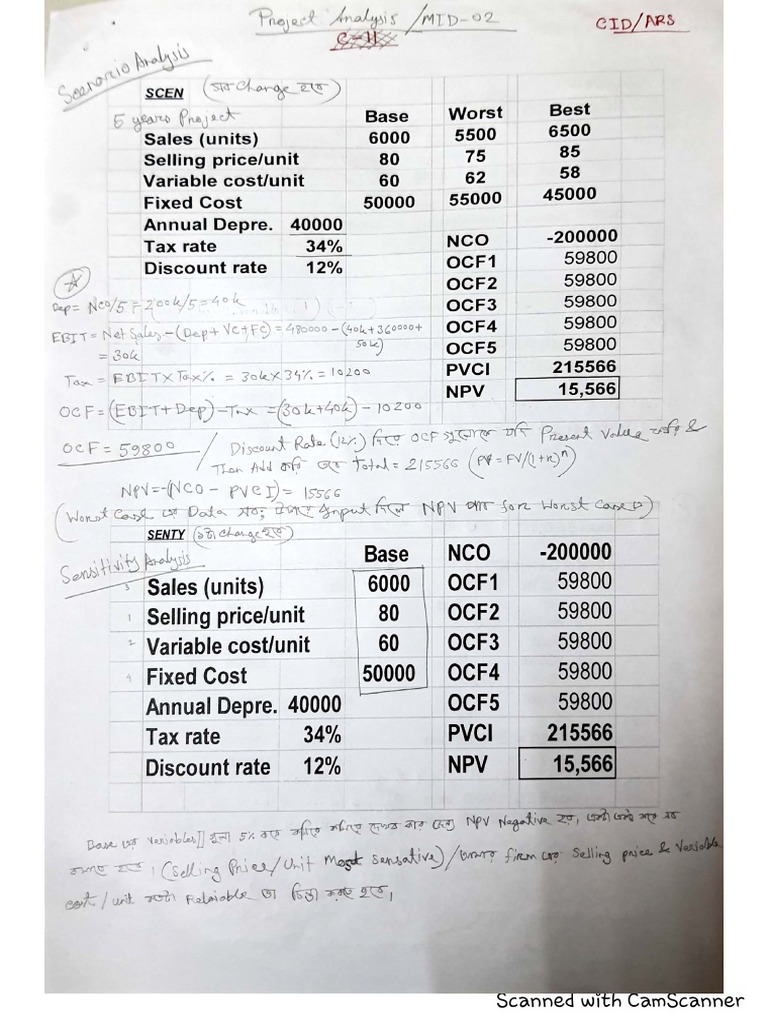 Project Analysis / MID-02
C-11
CID/ARS
Scenario Analysis
SCEN (সব Change হবে)
5 years Project
Base Worst Best
Sales (units) 6000 5500 6500
Selling price/unit 80 75 85
Variable cost/unit 60 62 58
Fixed Cost 50000 55000 45000
Annual Depre. 40000 NCO -200000
Tax rate 34% OCF1 59800
Discount rate 12% OCF2 59800
OCF3 59800
OCF4 59800
OCF5 59800
PVCI 215566
NPV 15,566
Dep = NCO/5 = 200k/5 = 40k
EBIT = Net Sales - (Dep + VC + FC) = 480000 - (40k + 360000 + 50k)
= 30k
Tax = EBIT X Tax% = 30k X 34% = 10200
OCF = (EBIT + Dep) - Tax = (30k + 40k) - 10200
OCF = 59800 / Discount Rate (12%) দিয়ে OCF গুলোকে Present Value &
Then Add Total = 215566 (PV = FV/(1+r)^n)
NPV = -(NCO - PVCI) = 15566
(Worst Case এর Data Input দিলে NPV for Worst Case এ)
SENTY (১টা change হবে)
Sensitivity Analysis
Base NCO -200000
3 Sales (units) 6000 OCF1 59800
1 Selling price/unit 80 OCF2 59800
2 Variable cost/unit 60 OCF3 59800
4 Fixed Cost 50000 OCF4 59800
Annual Depre. 40000 OCF5 59800
Tax rate 34% PVCI 215566
Discount rate 12% NPV 15,566
Base এর Variables গুলা 5% করে NPV Negative হয়,
হবে। (Selling Price/Unit Most Sensative) / firm এর Selling price & Variable
cost/unit কতটা Relaiable তা চিন্তা করতে হবে।
Scanned with CamScanner